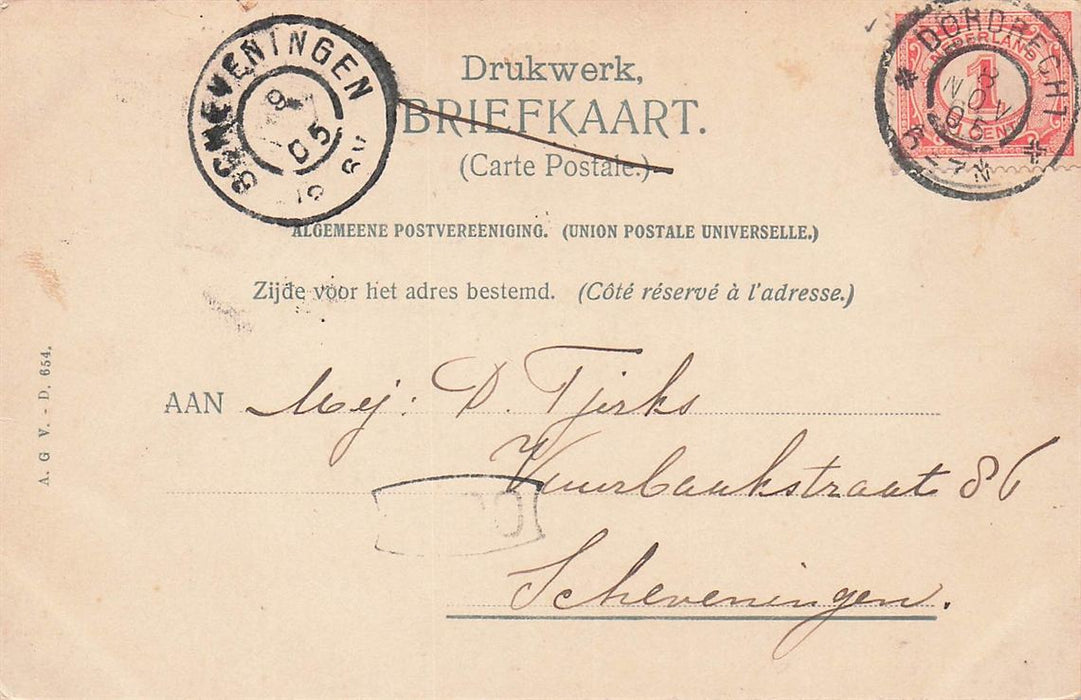 SCHEVENINGEN
8
05
Drukwerk,
BRIEFKAART.
(Carte Postale.)
DORDRECHT
8
NOV
05
NEDERLAND
1
CENT
ALGEMEENE POSTVEREENIGING. (UNION POSTALE UNIVERSELLE.)
Zijde voor het adres bestemd. (Côté réservé à l'adresse.)
A. G V. - D. 654.
AAN Mej: D. Tjerks
Vuurbaakstraat 86
Scheveningen.